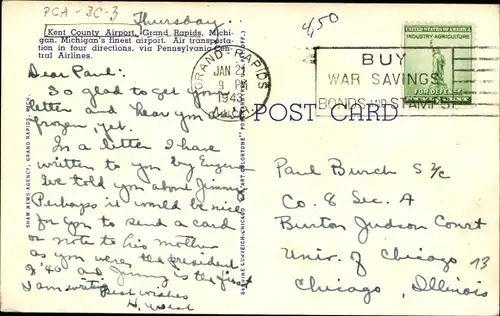 PCA-3C-3
Thursday.
4,50
Kent County Airport, Grand Rapids, Michi-
gan. Michigan's finest airport. Air transporta-
tion in four directions, via Pennsylvania-Cen-
tral Airlines.
GRAND RAPIDS
JAN 21
9 PM
1943
MICH.
BUY
WAR SAVINGS
BONDS AND STAMPS
UNITED STATES OF AMERICA
INDUSTRY-AGRICULTURE
FOR DEFENSE
POST CARD
Dear Paul:
So glad to get your
letter and hear you
frozen, yet.
In a letter I have
written to you by Eugene
I've told you about Jimmy.
Perhaps it would be nice
for you to send a card
or note to his mother
as you were the president
of '40 and Jimmy is the first
I am writing
Best wishes
H. West
SHAW NEWS AGENCY, GRAND RAPIDS, MICH.
GENUINE CURTEICH-CHICAGO "C.T. ART-COLORTONE" POST CARD
Paul Burch S 2/c
Co. 8 Sec. A
Burton Judson Court
Univ. of Chicago
Chicago, Illinois
13